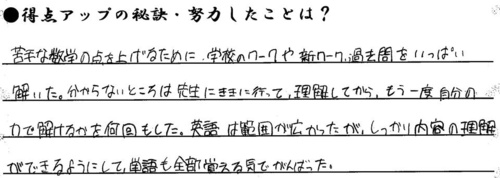 ●得点アップの秘訣・努力したことは？
苦手な数学の点を上げるために、学校のワークや新ワーク、過去問をいっぱい
解いた。分からないところは先生にききに行って、理解してから、もう一度自分の
力で解けるかを何回もした。英語は範囲が広かったが、しっかり内容の理解
ができるようにして、単語も全部覚える気でがんばった。